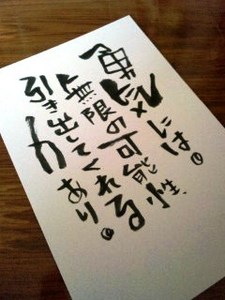 勇気には
無限の可能性、
引き出してくれる
力あり。